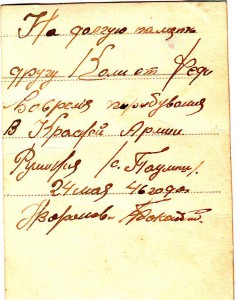 На долгую память
другу Коли от Феди
Вовремя пребывания
В Красной Армии
Румыния /с.
24 мая 46 года